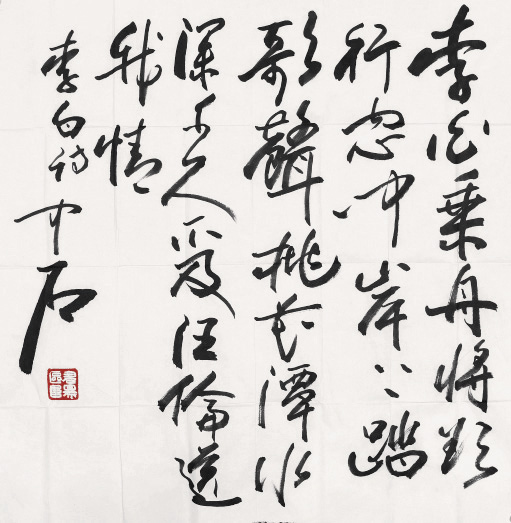 李白乘舟将欲
行忽闻岸上踏
歌聲桃花潭水
深千尺不及汪倫送
我情
李白诗 中石